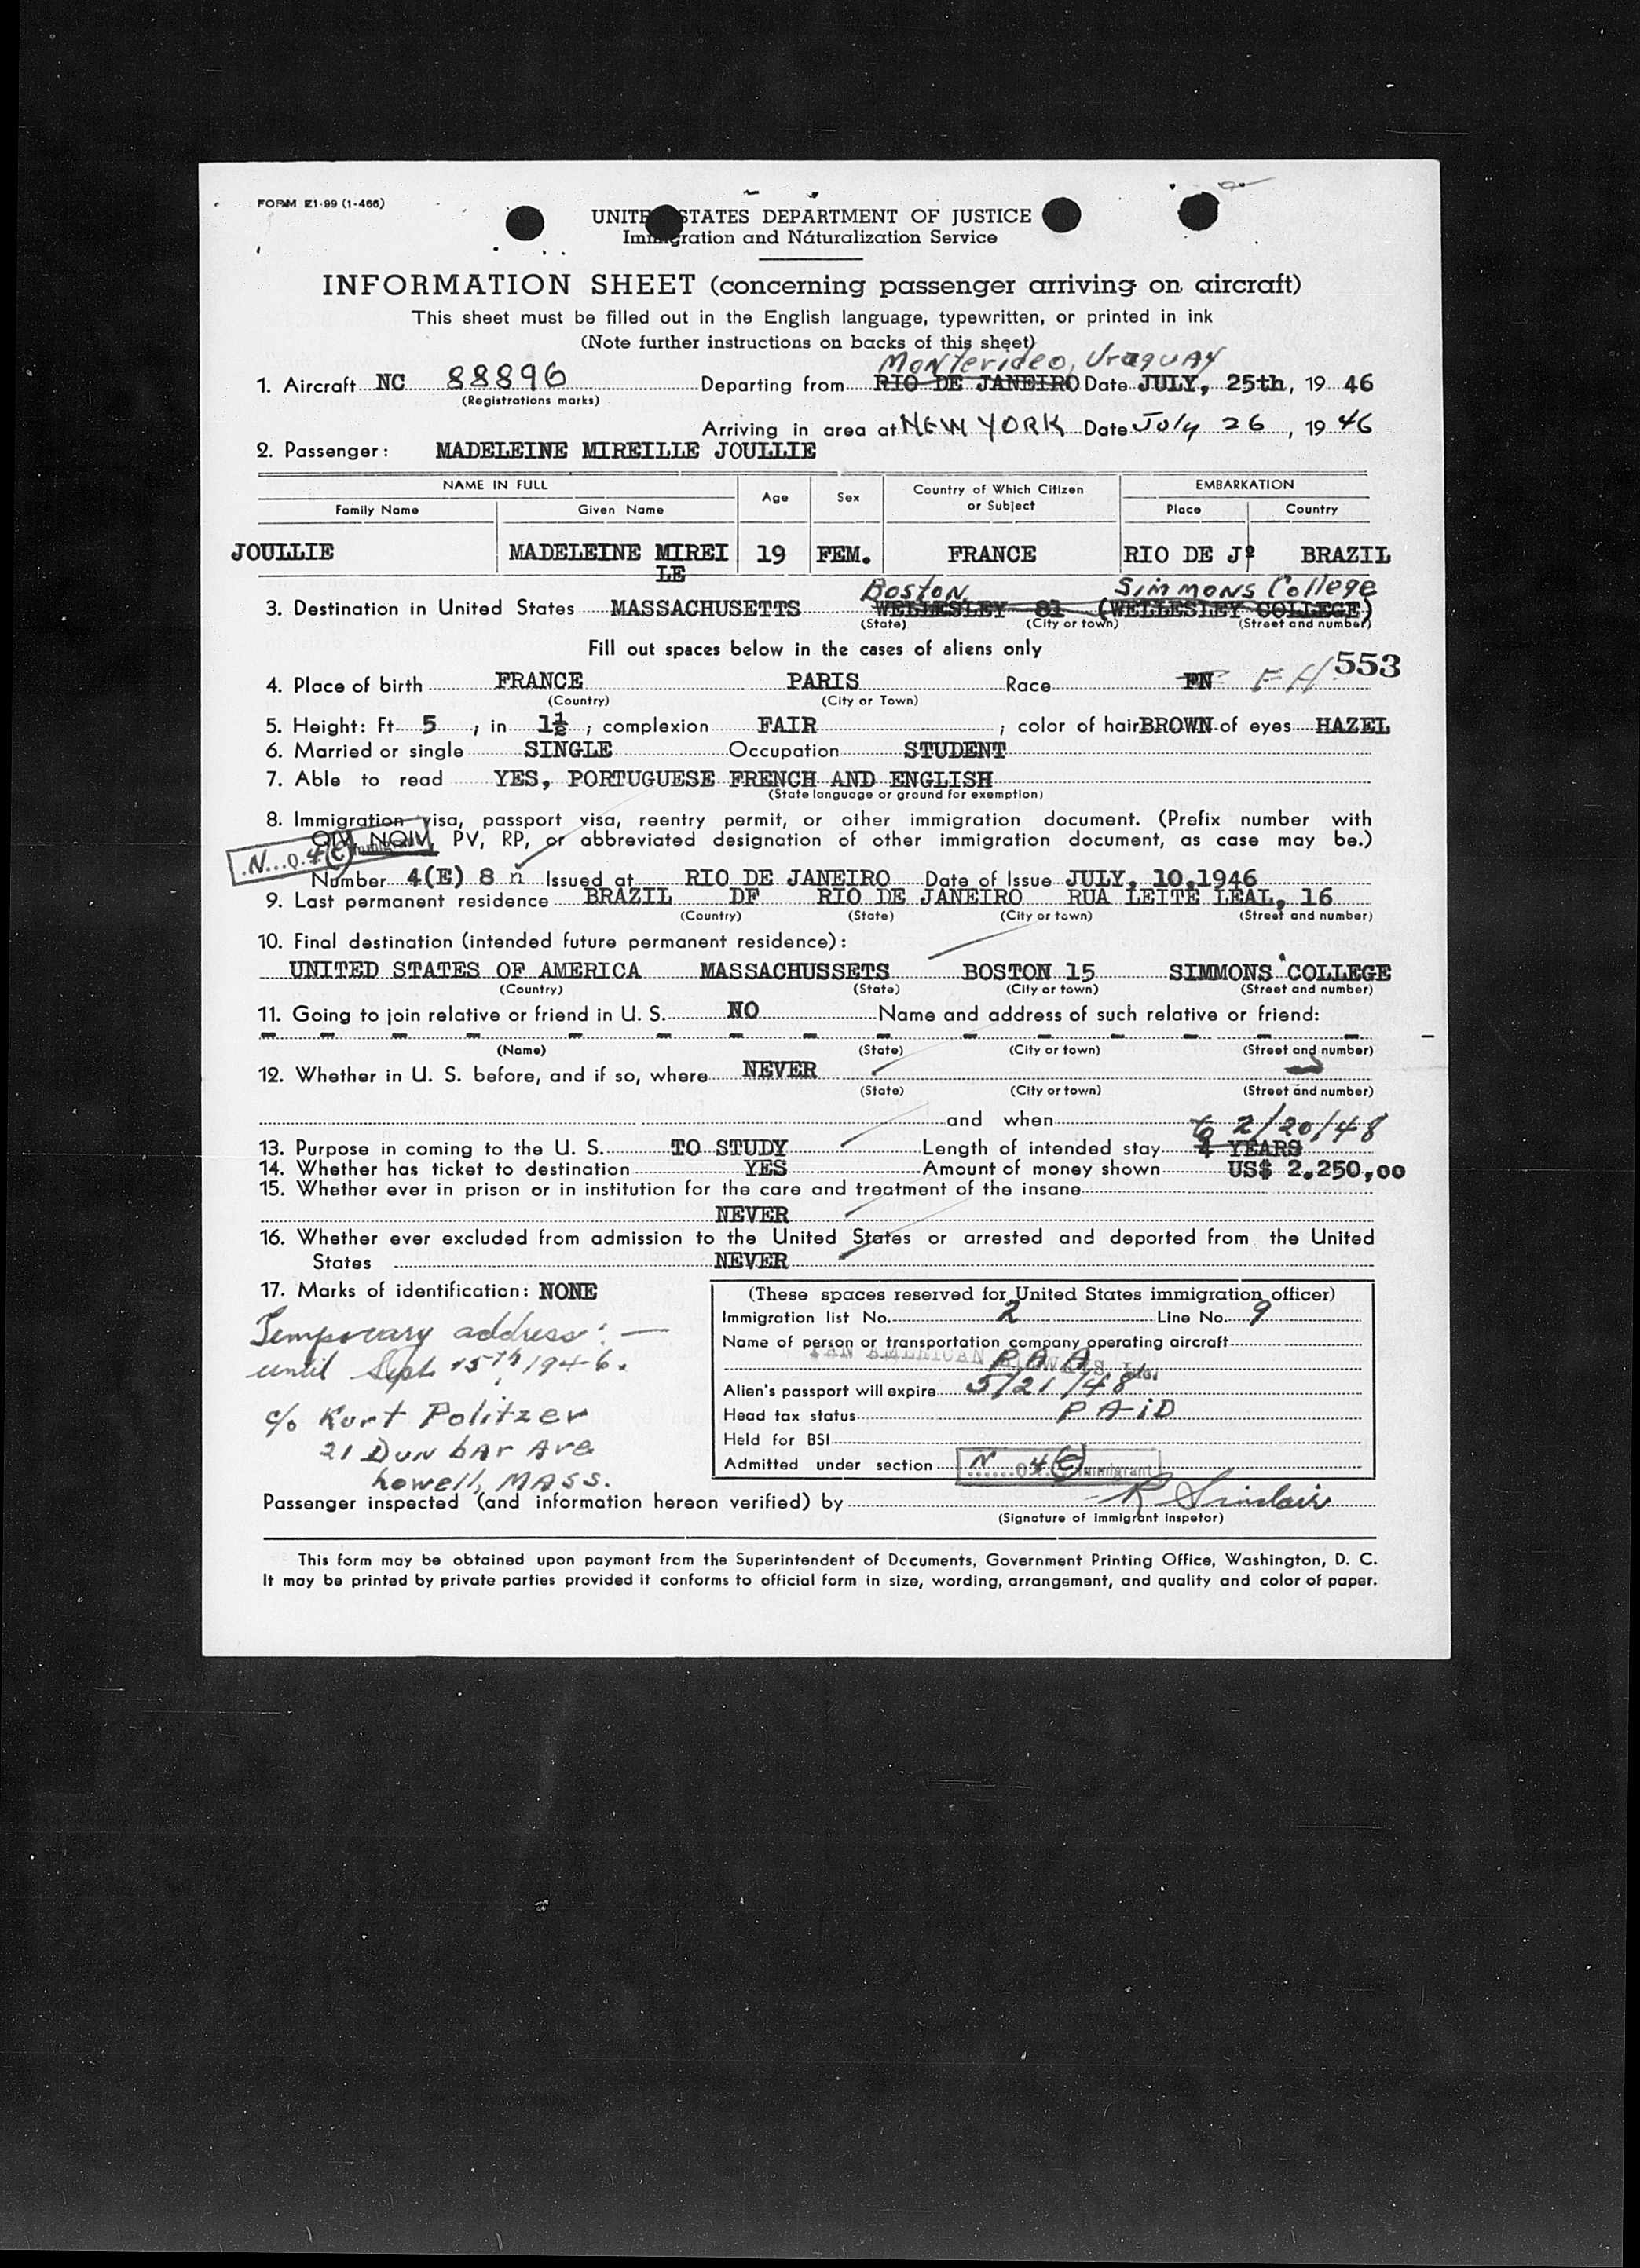 FORM E1-99 (1-466)
UNITED STATES DEPARTMENT OF JUSTICE
Immigration and Naturalization Service
INFORMATION SHEET (concerning passenger arriving on aircraft)
This sheet must be filled out in the English language, typewritten, or printed in ink
(Note further instructions on backs of this sheet)
Montevideo, Uraguay
1. Aircraft NC 88896 Departing from RIO DE JANEIRO Date JULY, 25th, 19 46
(Registrations marks)
Arriving in area at NEW YORK Date July 26, 19 46
2. Passenger: MADELEINE MIREILLE JOULLIE
NAME IN FULL Age Sex Country of Which Citizen or Subject EMBARKATION
Family Name Given Name Place Country
JOULLIE MADELEINE MIREI 19 FEM. FRANCE RIO DE Jº BRAZIL
LE
Boston Simmons College
3. Destination in United States MASSACHUSETTS WELLESLEY 81 (WELLESLEY COLLEGE)
(State) (City or town) (Street and number)
Fill out spaces below in the cases of aliens only
553
4. Place of birth FRANCE PARIS Race FN
(Country) (City or Town)
5. Height: Ft. 5, in 1½; complexion FAIR; color of hair BROWN of eyes HAZEL
6. Married or single SINGLE Occupation STUDENT
7. Able to read YES, PORTUGUESE FRENCH AND ENGLISH
(State language or ground for exemption)
8. Immigration visa, passport visa, reentry permit, or other immigration document. (Prefix number with
QIV, NQIV, PV, RP, or abbreviated designation of other immigration document, as case may be.)
Number 4(E) 8 Issued at RIO DE JANEIRO Date of Issue JULY, 10,1946
9. Last permanent residence BRAZIL DF RIO DE JANEIRO RUA LEITE LEAL, 16
(Country) (State) (City or town) (Street and number)
10. Final destination (intended future permanent residence):
UNITED STATES OF AMERICA MASSACHUSSETS BOSTON 15 SIMMONS COLLEGE
(Country) (State) (City or town) (Street and number)
11. Going to join relative or friend in U. S. NO Name and address of such relative or friend:
(Name) (State) (City or town) (Street and number)
12. Whether in U. S. before, and if so, where NEVER
(State) (City or town) (Street and number)
and when
to 2/20/48
13. Purpose in coming to the U. S. TO STUDY Length of intended stay 4 YEARS
14. Whether has ticket to destination YES Amount of money shown US$ 2.250,00
15. Whether ever in prison or in institution for the care and treatment of the insane
NEVER
16. Whether ever excluded from admission to the United States or arrested and deported from the United
States NEVER
17. Marks of identification: NONE
Temporary address: —
until Sept 15th 1946.
c/o Kurt Politzer
21 Dunbar Ave
Lowell, MASS.
(These spaces reserved for United States immigration officer)
Immigration list No. 2 Line No. 9
Name of person or transportation company operating aircraft
P A A
Alien's passport will expire 5/21/48
Head tax status PAiD
Held for BSI
Admitted under section N 4(E) Immigrant
Passenger inspected (and information hereon verified) by R Sinclair
(Signature of immigrant inspetor)
This form may be obtained upon payment from the Superintendent of Documents, Government Printing Office, Washington, D. C.
It may be printed by private parties provided it conforms to official form in size, wording, arrangement, and quality and color of paper.